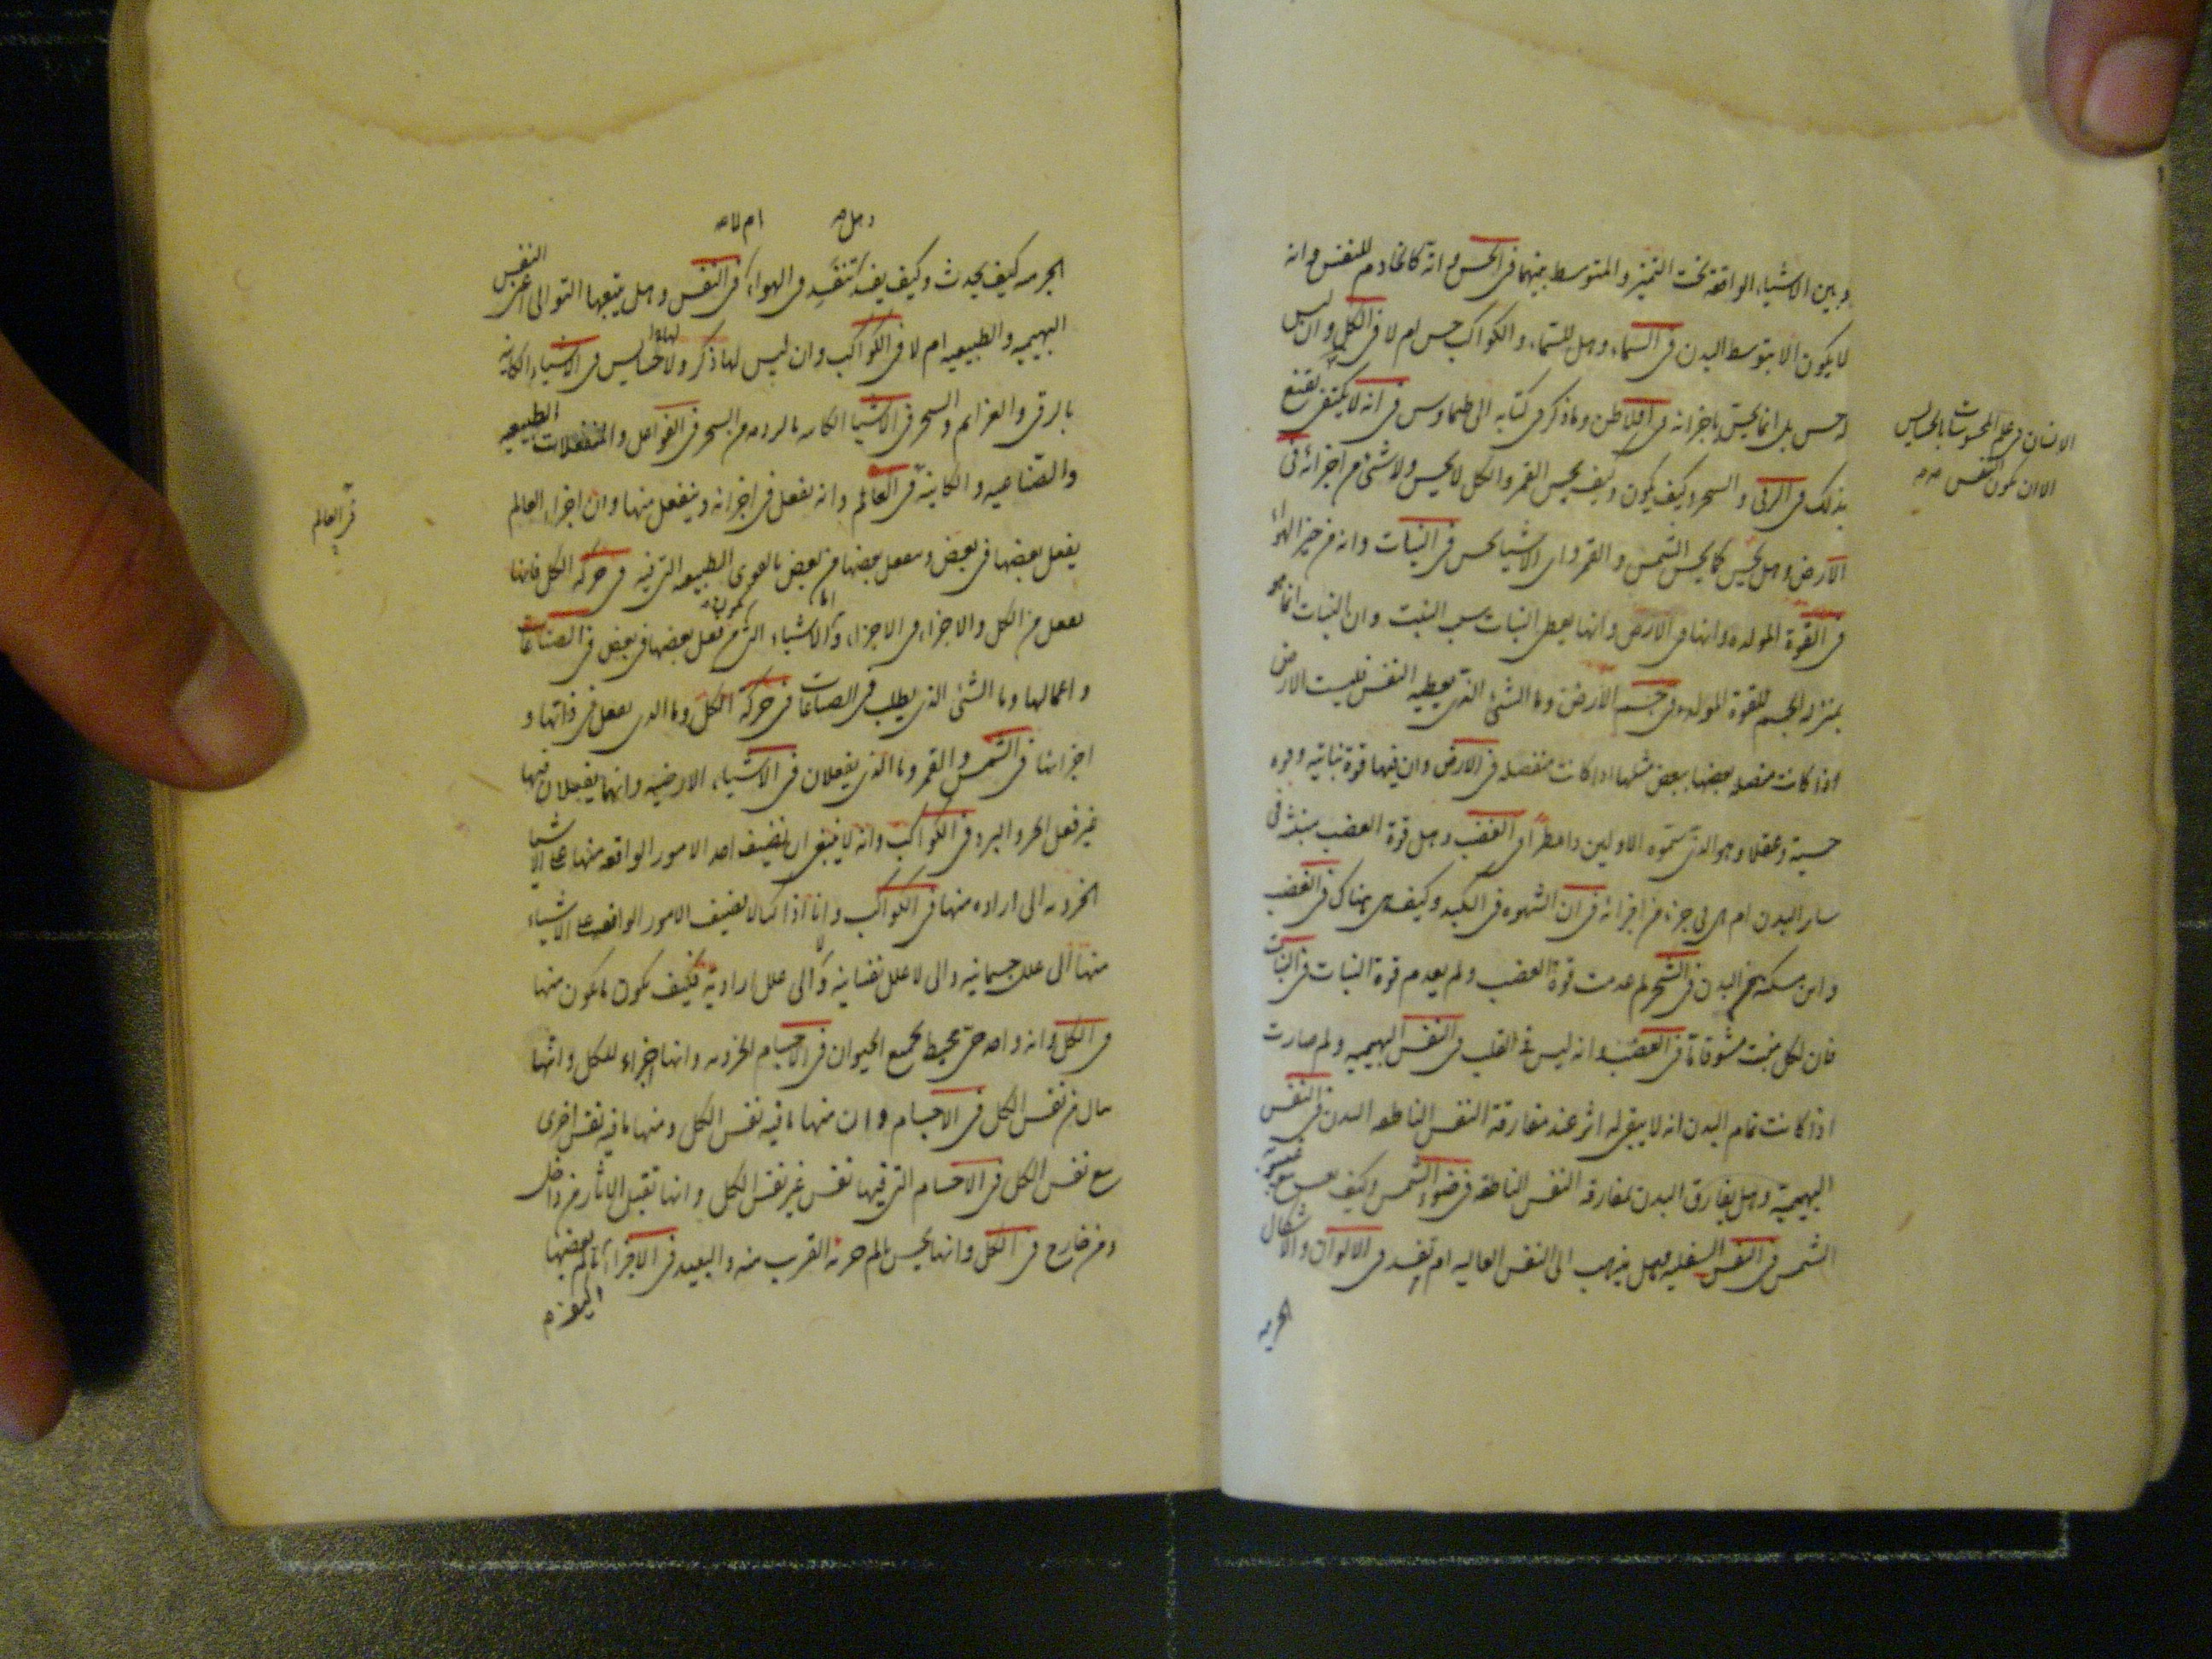 وبين الاشياء الواقعة تحت التميز والمتوسط بينهما فى الحس وانه كالخادم للنفس وانه
لا يكون الا بتوسط البدن فى السماء وهل للسماء والكواكب حس ام لا فى الكل وان ليس
له حس بل انما يحس باجزائه فى افلاطن وما ذكر فى كتابه الى طيماوس فى انه لا يكتفى نقنع
بذلك فى الرقى والسحر وكيف يكون وكيف يحس القمر والكل لا يحس ولا شئ من اجزائه فى
الارض وهل تحس كما يحس الشمس والقمر واى الاشيا تحس فى النبات وانه من حيز الهواء
فى القوة المولده وانها فى الارض وانها يعطى النبات سبب النبت وان النبات انما هو
بمنزله الجسم للقوة المولده فى جسم الارض وما الشئ الذى يعطيه النفس فليست الارض
اذا كانت متصله بعضها ببعض مثلها اذا كانت منفصله فى الارض وان فيها قوة نباتيه وقوه
حسية وعقلا وهو الذى سموه الاولين دامطرا فى الغضب وهل قوة الغضب منبثه فى
ساير البدن ام هى فى جزء من اجزائه فى ان الشهوه فى الكبد وكيف هى هناك فى الغضب
واين مسكنه من البدن فى الشجر لم عدمت قوة الغضب ولم يعدم قوة النبات فى النبات
فان لكل نبت شوقا ما فى الغضب وانه ليس فى القلب فى النفس البهيميه ولم صارت
اذا كانت تمام البدن انه لا يبقى له اثر عند مفارقة النفس الناطقه البدن فى النفس
البهيمية وهل يفارق البدن بمفارقه النفس الناطقه فى ضوء الشمس وكيف
الشمس فى النفس السفليه وهل يذهب الى النفس العاليه ام تفسد فى الالوان والاشكال
الجرميه
الانسان فى علم المحسوسات بالحسايس
الا ان يكون النفس
وهل
ام لا
الجرميه كيف يحدث وكيف يفسد فى الهواء فى النفس وهل يتبعها التوالى اعنى النفس
البهيميه والطبيعيه ام لا فى الكواكب وان ليس لها ذكر ولها حسايس فى الاشياء الكائنه
بالرقى والعزائم والسحر فى الاشيا الكائنه بالرقى من السحر فى الفواعل والمنفعلات الطبيعيه
والصناعيه والكاينة فى العالم وانه يفعل فى اجزائه وينفعل منها وان اجزاء العالم
يفعل بعضها فى بعض وينفعل بعضها من بعض بالقوى الطبيعيه التى فيه فى حركة الكل فانها
يفعل فى الكل والاجزاء فى الاجزاء والاشياء التى من فعل بعضها فى بعض فى الصناعات
واعمالها وما الشئ الذى يطلب فى الصناعات فى حركة الكل وما الذى يفعل فى ذاتها و
اجزائها فى الشمس والقمر وما الذى يفعلان فى الاشياء الارضيه وانهما يفعلان فيها
غير فعل الحر والبرد فى الكواكب وانه لا ينبغى ان نضيف احد الامور الواقعه منها على الاشيا
الجزويه الى اراده منها فى الكواكب وانا اذا كنا لا نضيف الامور الواقعه على الاشياء
منها الى علل جسمانيه ولا الى علل نفسانيه ولا الى علل اراديه فكيف يكون ما يكون منها
فى الكل وانه واحد حى محيط بجميع الحيوان فى الاجسام الجزويه وانها اجزاء للكل وانها
تنال من نفس الكل فى الاجسام وان منها ما فيه نفس الكل ومنها ما فيه نفس اخرى
مع نفس الكل فى الاجسام التى فيها نفس غير نفس الكل وانها تقبل الاثار من داخل
ومن خارج فى الكل وانها يحس بالم جزئه القريب منه والبعيد فى الاجزاء بالم بعضها
فى العالم